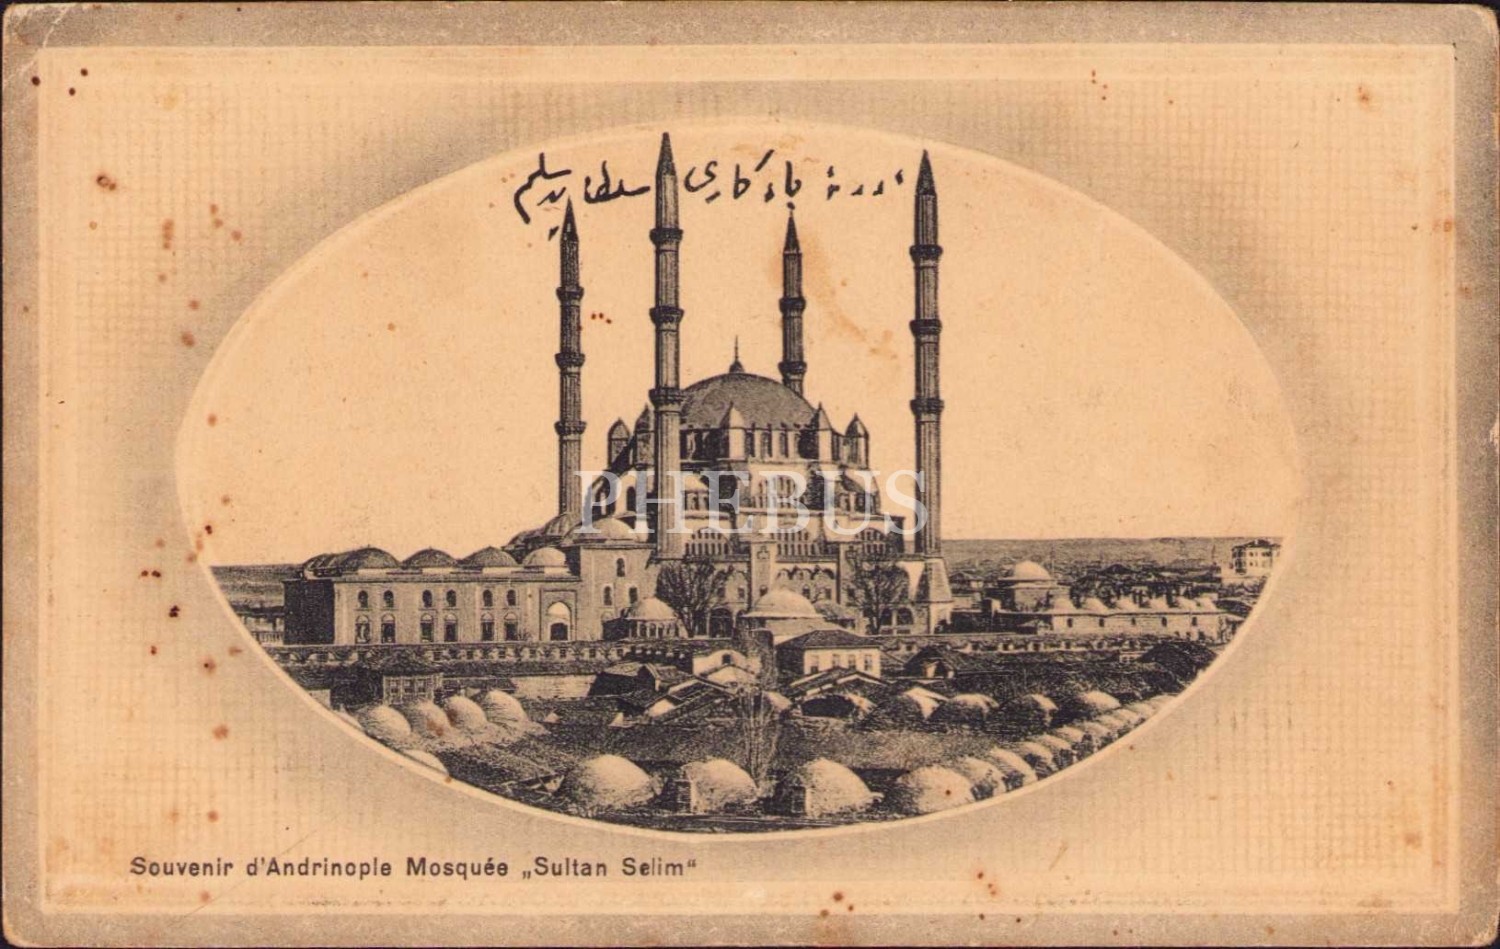 ادرنه يادكارى سلطان سليم
PHEBUS
Souvenir d'Andrinople Mosquée „Sultan Selim“